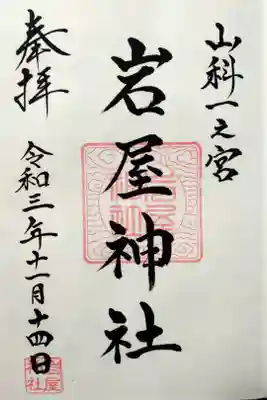 山科一之宮
岩屋神社
奉拝
令和三年十一月十四日
岩屋神社